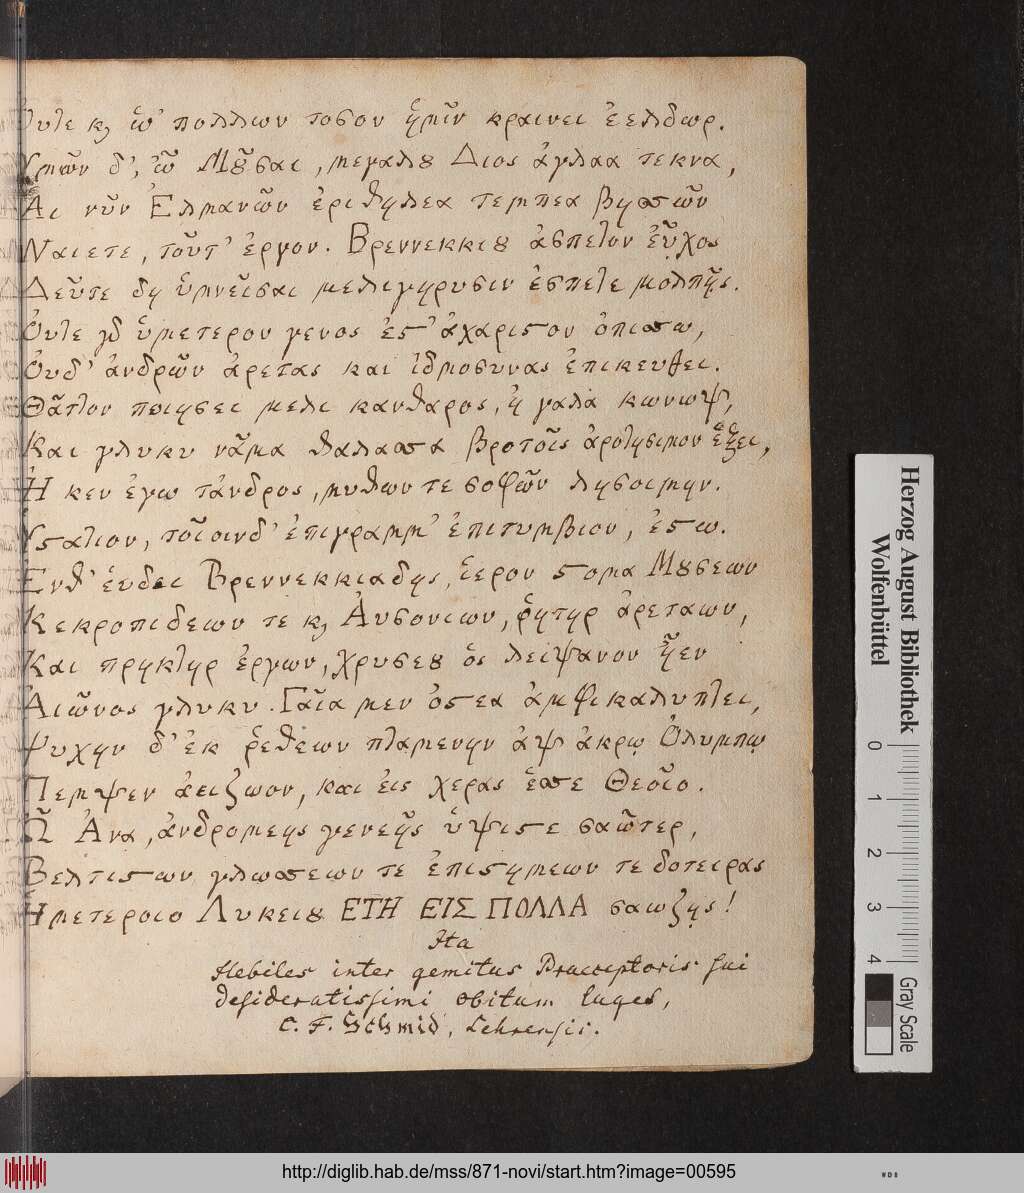 Ὀυτε κ̀ ὣ' πολλων τοσον ἡμῖν κραινει ἐελδωρ.
Ὑμῶν δ', ὦ Μȣ̃σαι, μεγαλȣ Διος ἀγλαα τεκνα,
Αι νῦν Ἐλμανῶν ἐριθηλεα τεμπεα βησσῶν
Ναιετε, τοῦτ' ἐργον. Βρεννεκκιȣ ἀσπετον εὖχος
Δεῦτε δη ὑμνεῖσαι μελιγηρυσιν ἐσπετε μολπῇς.
Ὀυτε γὰρ ὑμετερον γενος ἐστ' ἀχαριστον ὀπισσω,
Ὀυδ' ἀνδρῶν ἀρετας και ἰδμοσυνας ἐπικευθει.
Θᾶττον ποιησει μελι κανθαρος, ἠ γαλα κωνωψ,
Και γλυκυ νᾶμα θαλασσα βροτοῖς ἀροτησιμον ἕξει,
Ἠ κεν ἐγω τἀνδρος, μυθων τε σοφῶν λησοιμην.
Ὑστατιον, τοῖοινδ' ἐπιγραμμ' ἐπιτυμβιον, ἐστω.
Ἐνθ' ἑυδει Βρεννεκκιαδης, ἱερον στομα Μȣσεων
Κεκροπιδεων τε κ̀ Ἀυσονιων, ῥητηρ ἀρεταων,
Και πρηκτηρ ἐργων, χρυσεȣ ὁς λειψανον ἦεν
Ἀιῶνος γλυκυ. Γαῖα μεν ὀστεα ἀμφικαλυπτει,
Ψυχην δ' ἐκ ῥεθεων πταμενην ἀψ ἀκρῳ Ὀλυμπῳ
Πεμψεν ἀειζωον, και ἐις χερας ἑσσε Θεοῖο.
Ὦ Ἀνα, ἀνδρομεης γενεῆς ὑψιστε σαῶτερ,
Βελτιστων γλωσσεων τε ἐπιστημεων τε δοτειρας
Ἡμετεροιο Λυκειȣ ΕΤΗ ΕΙΣ ΠΟΛΛΑ σαωζῃς!
Ita
flebiles inter gemitus Praeceptoris sui
desideratissimi obitum luget,
C. F. Schmid, Lehrensis.
Herzog August Bibliothek
Wolfenbüttel
0 1 2 3 4
Gray Scale
http://diglib.hab.de/mss/871-novi/start.htm?image=00595